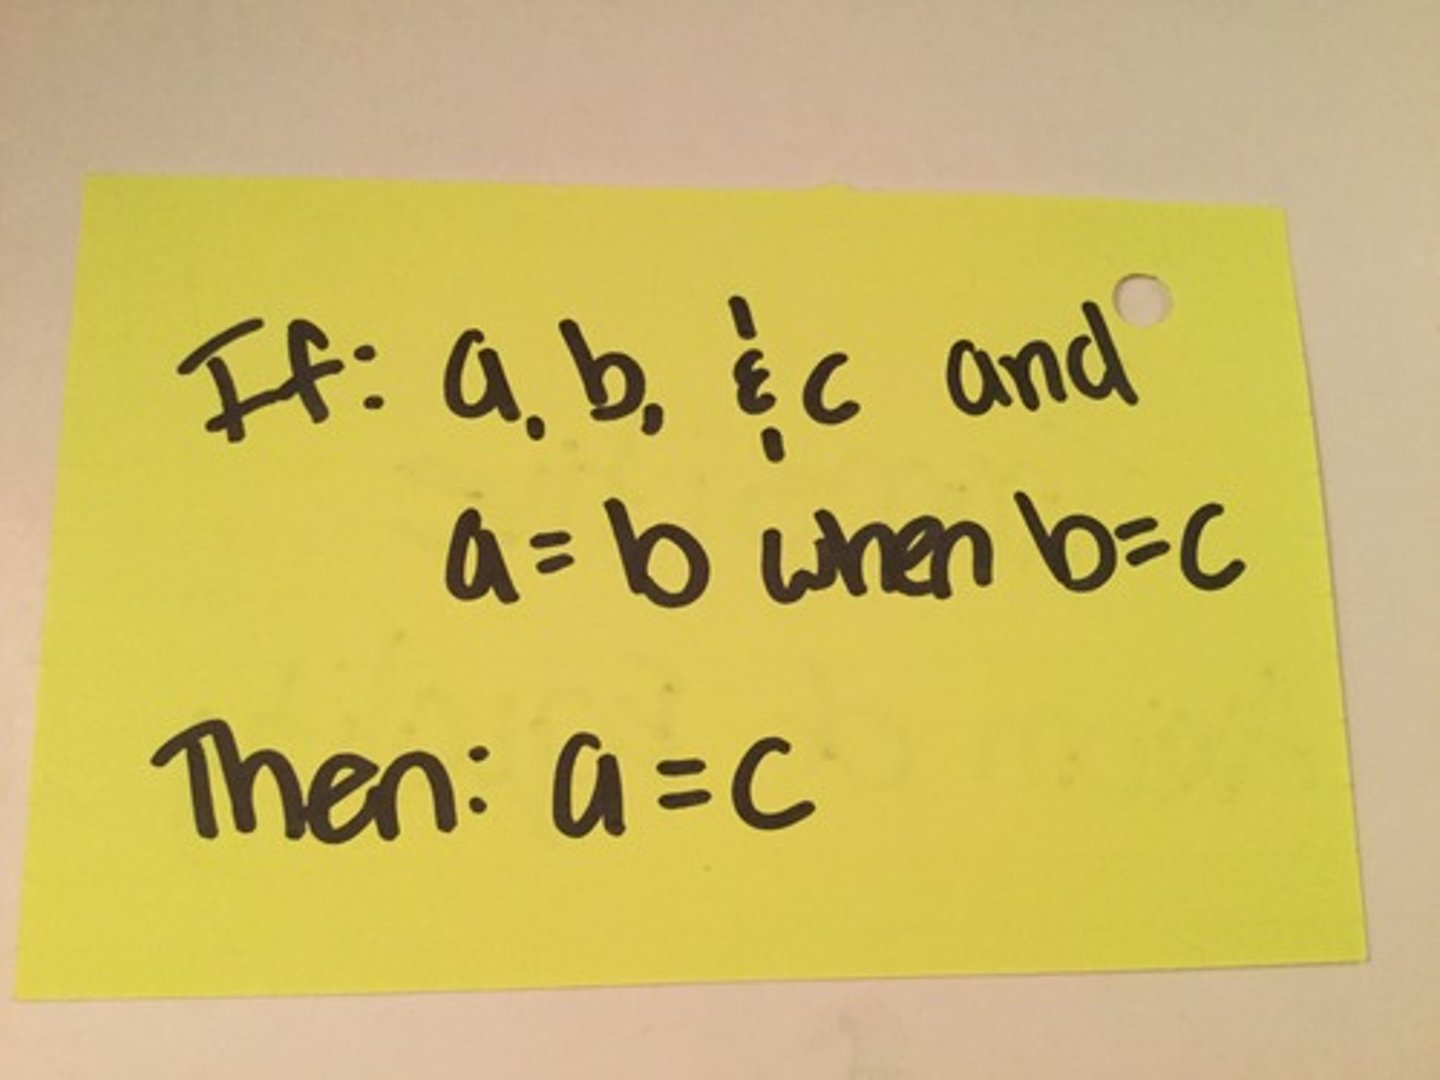 If: a, b, & c and
a = b when b = c
Then: a = c